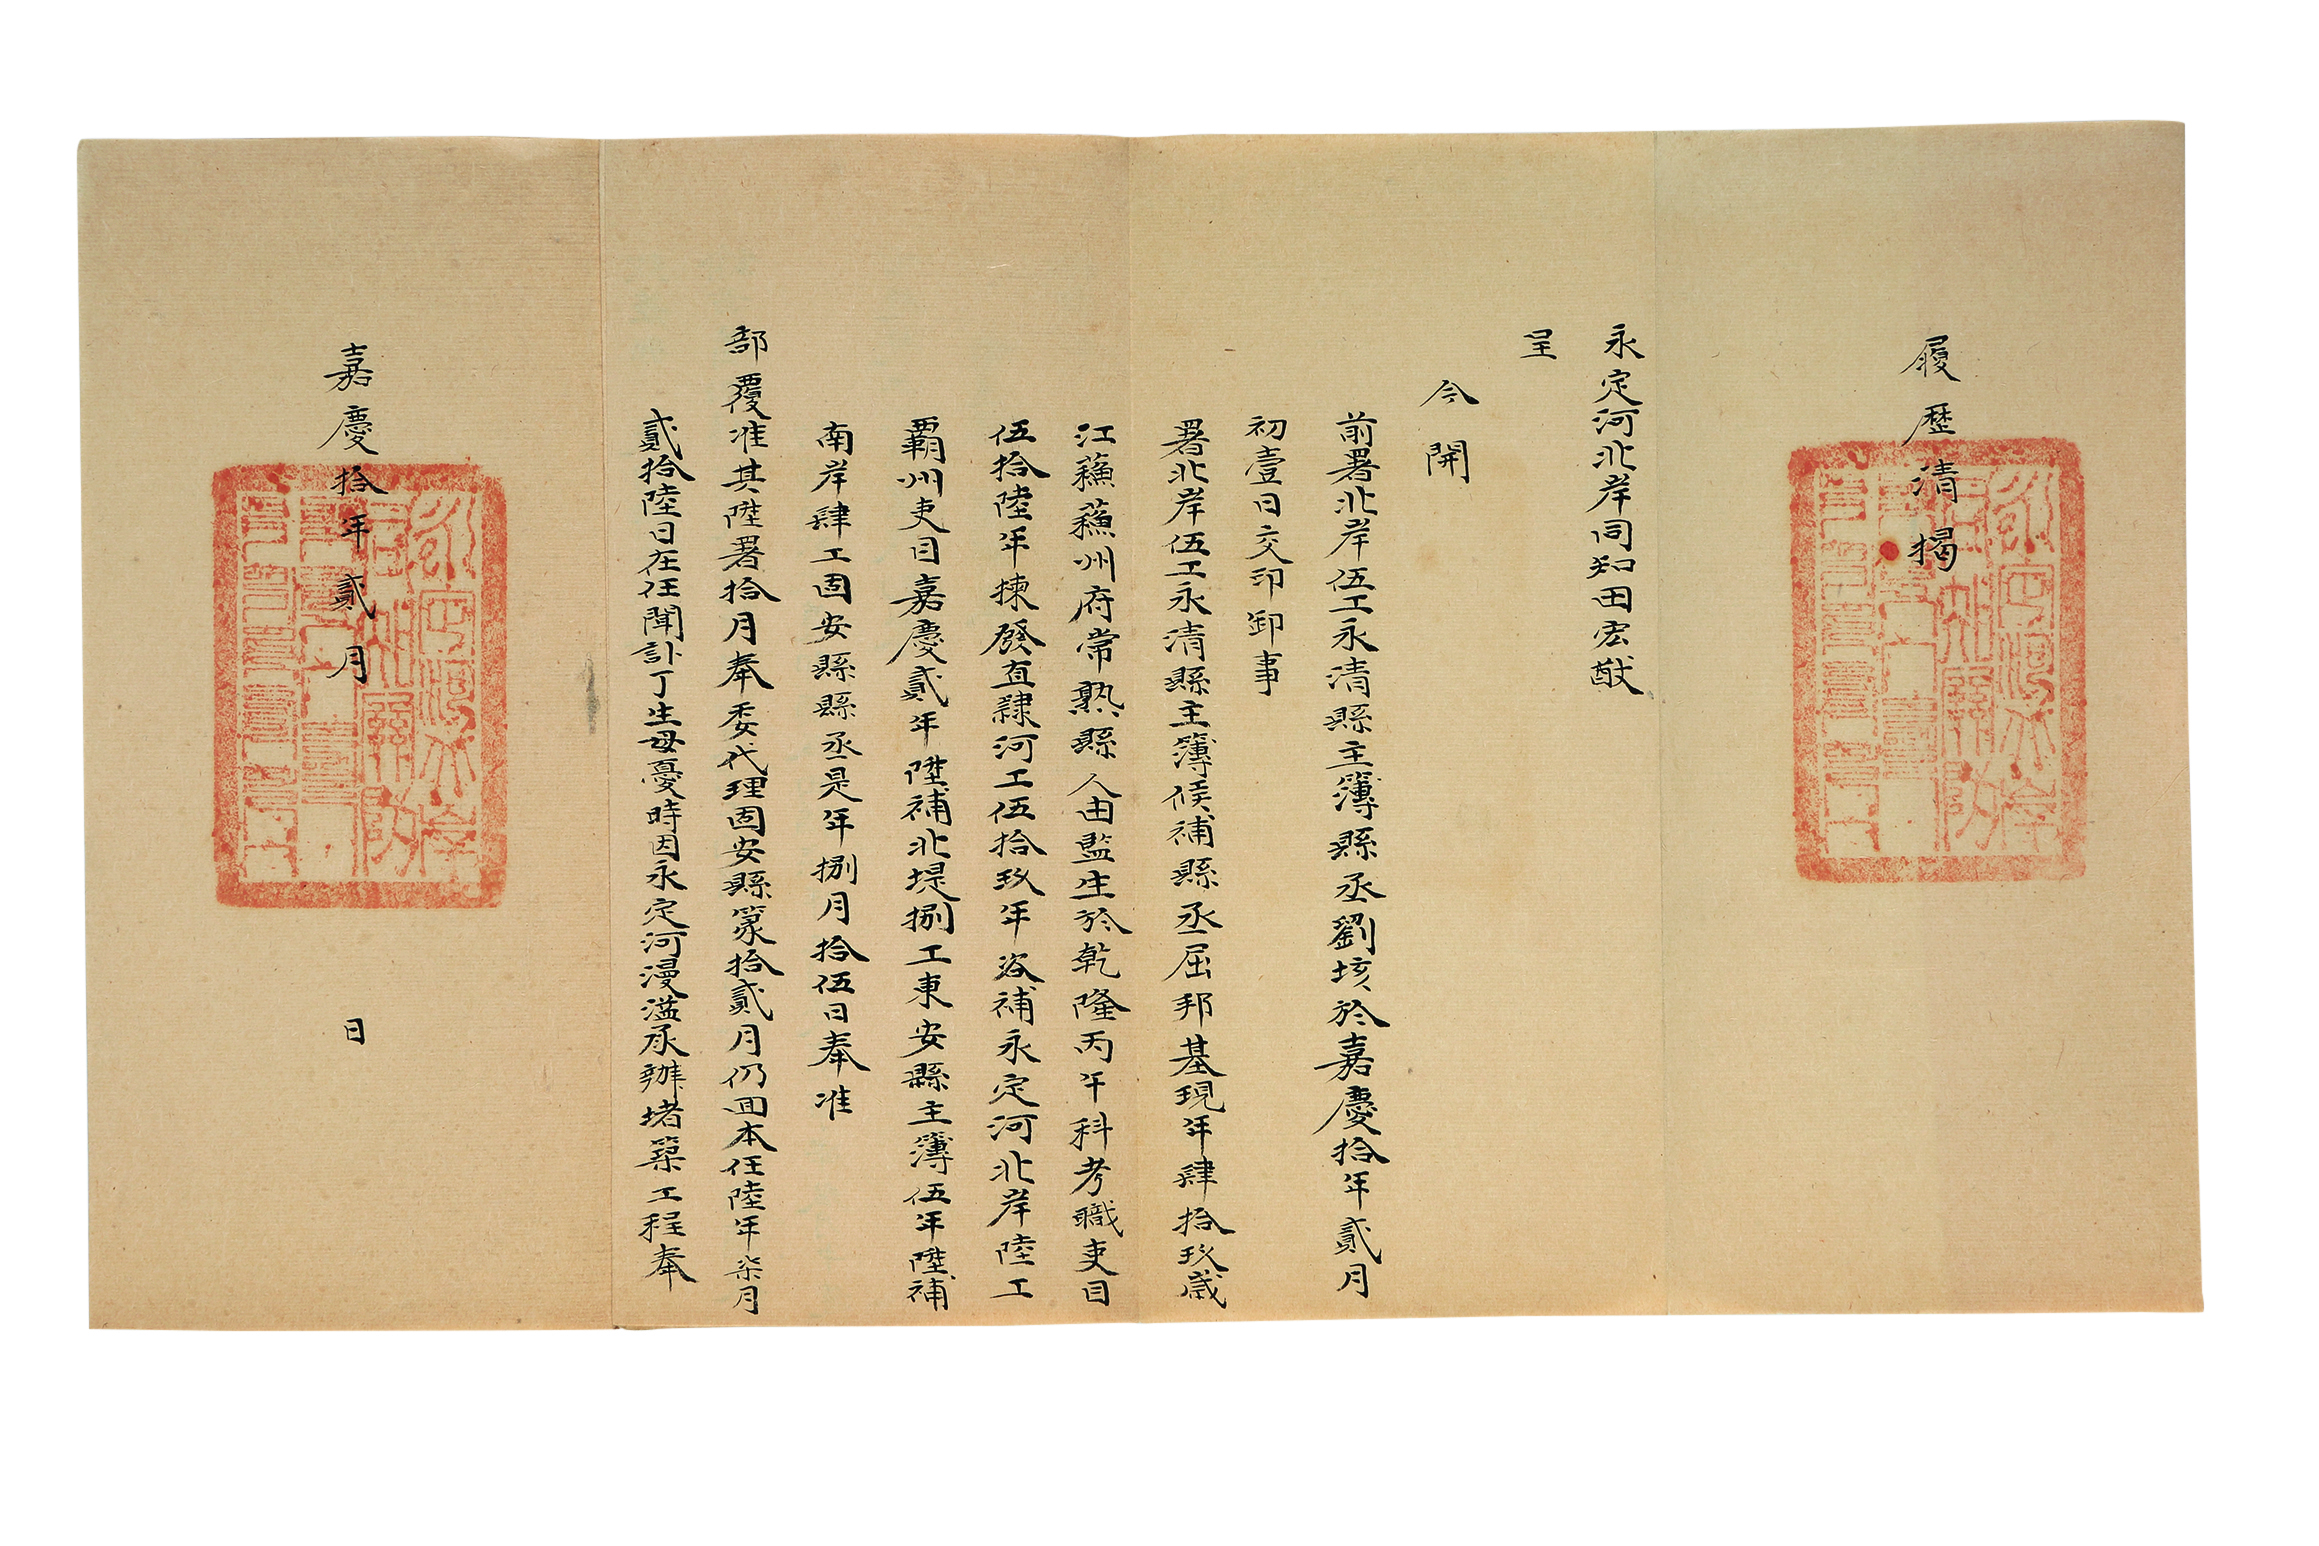 履歷清揭
永定河北岸同知田宏猷
呈
今開
前署北岸伍工永清縣主簿縣丞劉垓於嘉慶拾年貳月
初壹日交印卸事
署北岸伍工永清縣主簿候補縣丞屈邦基現年肆拾玖歲
江蘓蘓州府常熟縣人由監生於乾隆丙午科考職吏目
伍拾陸年揀發直隸河工伍拾玖年咨補永定河北岸陸工
霸州吏目嘉慶貳年陞補北堤捌工東安縣主簿伍年陞補
南岸肆工固安縣縣丞是年捌月拾伍日奉准
部覆准其陞署拾月奉委代理固安縣篆拾貳月仍囬本任陸年柒月
貳拾陸日在任聞訃丁生母憂時因永定河漫溢承辦堵築工程奉
嘉慶拾年貳月
日